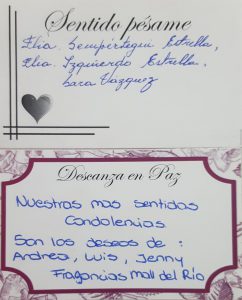 Sentido pésame
Elia. Sempértegui Estrella,
Elsa. Izquierdo Estrella,
Sara Vazquez
Descanza en Paz
Nuestras mas sentidas
Condolencias
Son los deseos de :
Andrea, Luis, Jenny
Fragancias Mall del Río